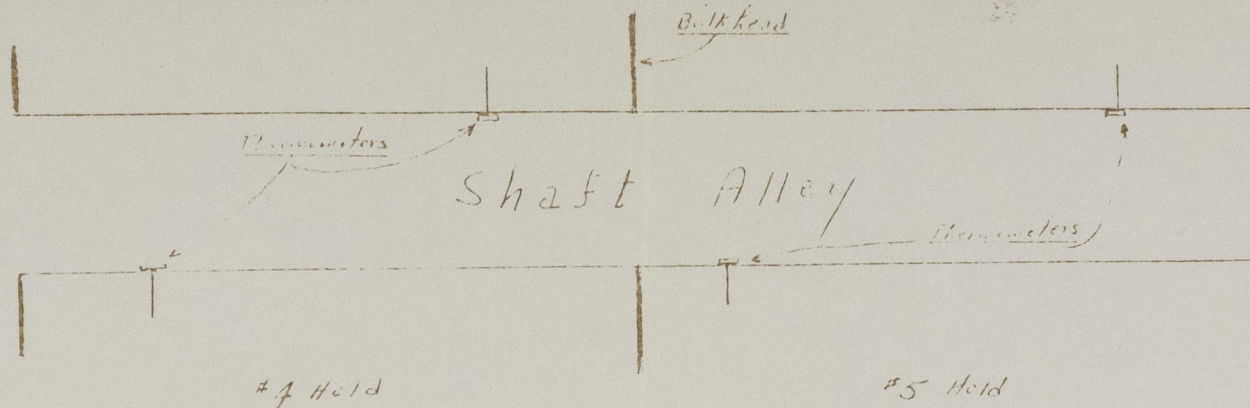 Bulkhead
Thermometers
Shaft Alley
Thermometers
#4 Hold #5 Hold